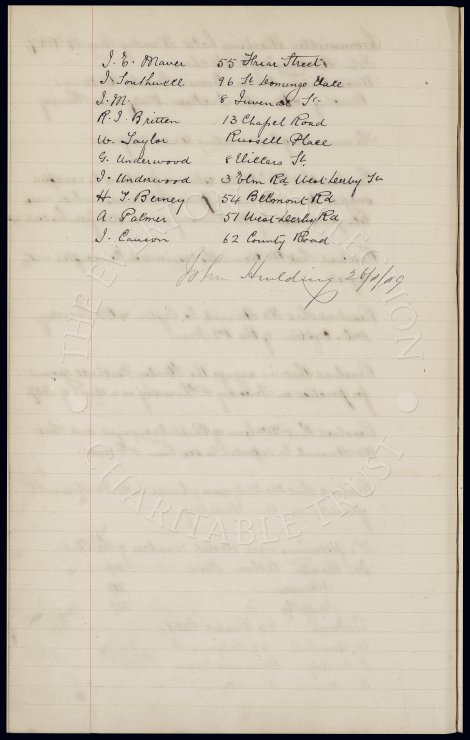 J. E. Maver 55 Friar Street
J. Southwell 96 St Domingo Vale
J. M. 8 Juvenal St
R. J. Britten 13 Chapel Road
W. Taylor Russell Place
G. Underwood 8 Villars St.
J. Underwood 3 Elm Rd West Derby St
H. T. Berney 54 Belmont Rd
A. Palmer 51 West Derby Rd
J. Cawson 62 County Road
John Houlding
THE EVERTON COLLECTION
CHARITABLE TRUST